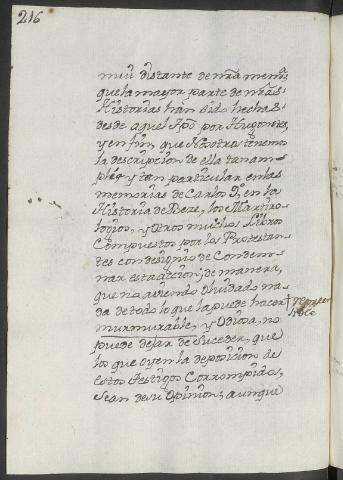 216
muy distante de nrã memª
que la mayor parte de nrãs
Historias hán sido hechas
desde aquel tpõ por Hugonotes,
y en fin, que Nosotros tenemos
la descripcion de ella tan am-
plia y tan particular en las
memorias de Carlos 9º, en la
Historia de Beze, los Martiro-
logios, y otros muchos Libros
Compuestos por los Protestan-
tes con designio de Condem-
nar esta accion; de manera,
que no aviendo olvidado na-
da de todo lo que la puede hacer
murmurable, y Odiosa, no
puede dejar de Suceder, que
los que oyen la deposicion de
estos testigos Corrompidos,
sean de su Opinion; aunque